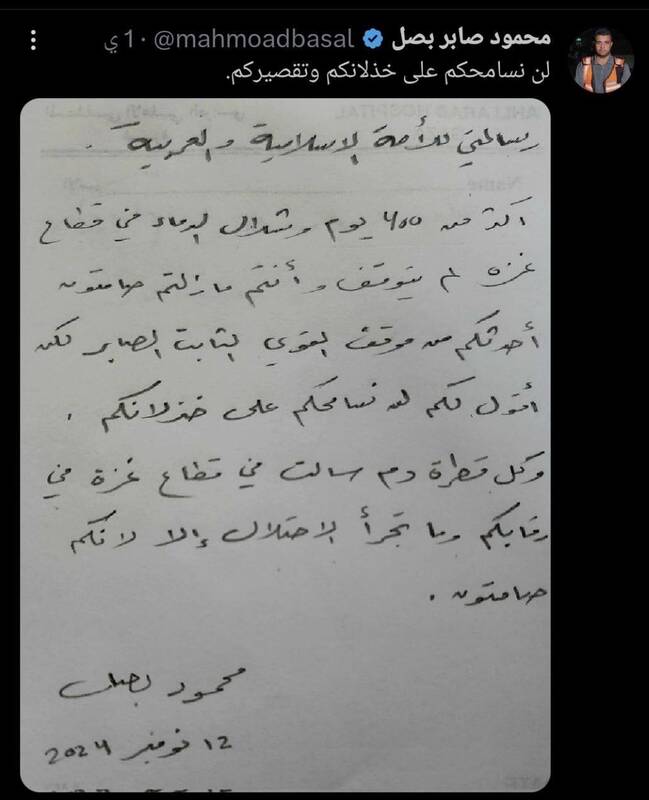 محمود صابر بصل @mahmoadbasal · 1ي
لن نسامحكم على خذلانكم وتقصيركم.
رسالتي للأمة الإسلامية و العربية.
أكثر من 400 يوم وشلال الدماء في قطاع
غزة لم يتوقف و أنتم مازلتم صامتون
أحدثكم من موقف القوي الثابت الصابر لكن
أقول لكم لن نسامحكم على خذلانكم .
وكل قطرة دم سالت في قطاع غزة في
رقابكم وما تجرأ الاحتلال إلا لانكم
صامتون .
محمود بصل
12 نوفمبر 2024